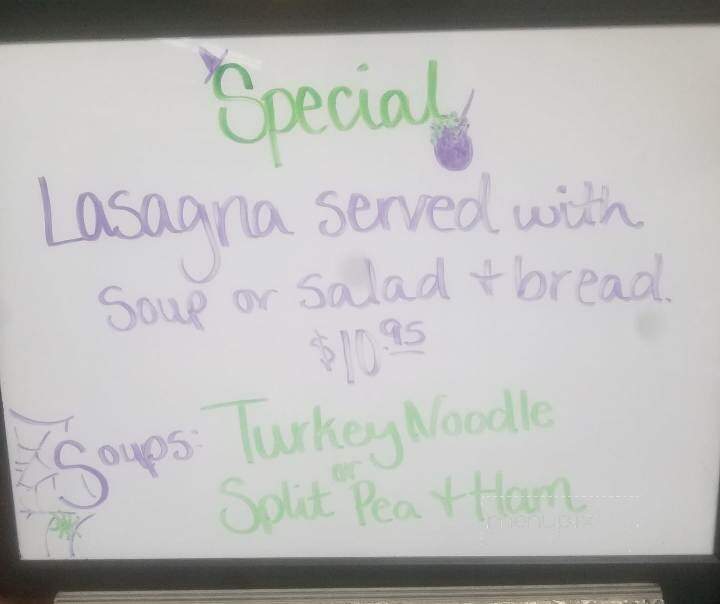 Special
Lasagna served with
Soup or Salad + bread.
$10.95
Soups: Turkey Noodle
or
Split Pea + Ham
menupix